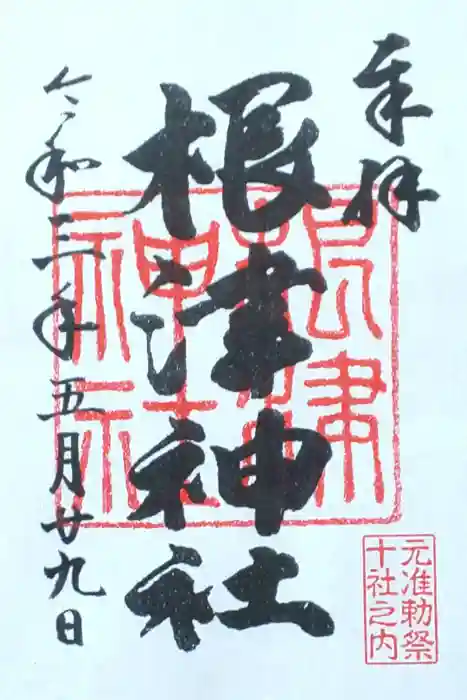 奉拝
根津神社
令和三年五月廿九日
根津
神社
元准勅祭
十社之内